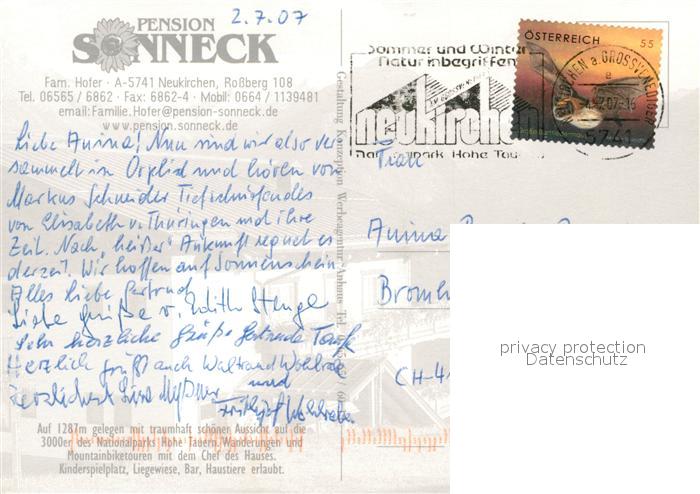 PENSION
SONNECK
2.7.07
Fam. Hofer · A-5741 Neukirchen, Roßberg 108
Tel. 06565 / 6862 · Fax: 6862-4 · Mobil: 0664 / 1139481
email:Familie.Hofer@pension-sonneck.de
www.pension.sonneck.de
Liebe Anima! Nun sind wir also ver-
sammelt im und hören von
Markus Schneider Tiefschürfendes
von Elisabeth v. Thüringen und ihre
Zeit. Nach „heißer" Ankunft regnet es
derzeit. Wir hoffen auf Sonnenschein
Alles Liebe Gertrud
Liebe Grüße v. Edith Stenge
Sehr herzliche Grüße Gertrude
Herzlich grüßt auch Waltraud
herzlichst und
Auf 1287m gelegen mit traumhaft schöner Aussicht auf die
3000er des Nationalparks Hohe Tauern. Wanderungen und
Mountainbiketouren mit dem Chef des Hauses.
Kinderspielplatz, Liegewiese, Bar, Haustiere erlaubt.
Gestaltung Konzeption Werbeagentur Anhaus Tel.
Sommer und Winter
Natur inbegriffen
neukirchen
Nationalpark Hohe Tauern
ÖSTERREICH 55
5741
Frau
Anima
CH-4
privacy protection
Datenschutz